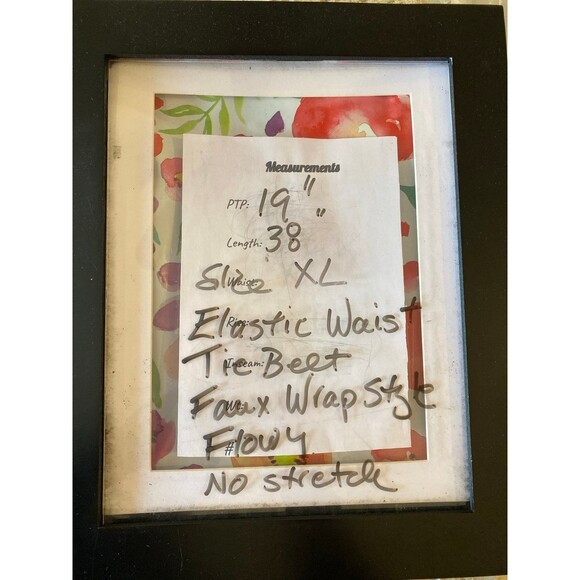 Measurements
PTP: 19"
Length: 38"
Waist: Size XL
Rise: Elastic Waist
Inseam: Tie Belt
Faux Wrap Style
# Flowy
No stretch